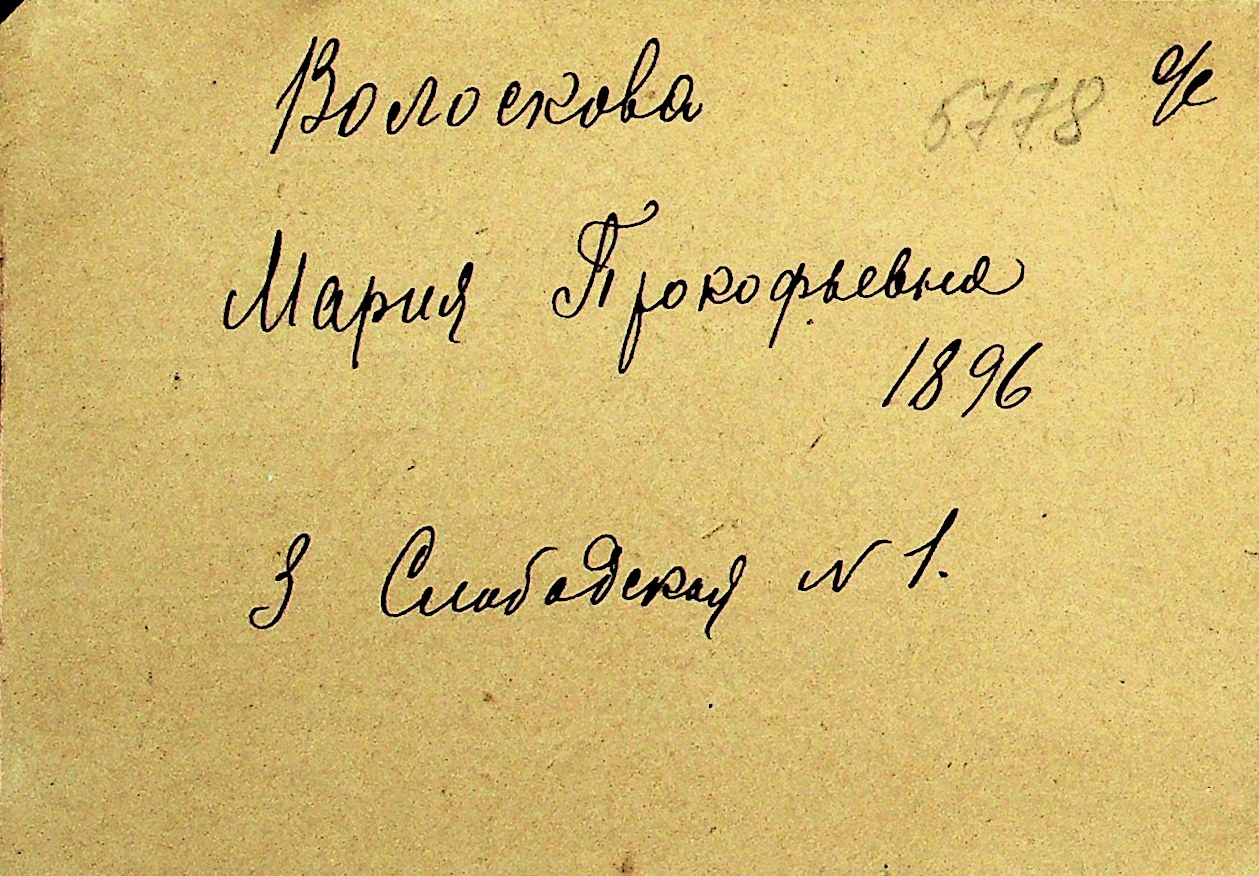 Волоскова 5778 о/с
Мария Прокофьевна
1896
3 Слободская N 1.